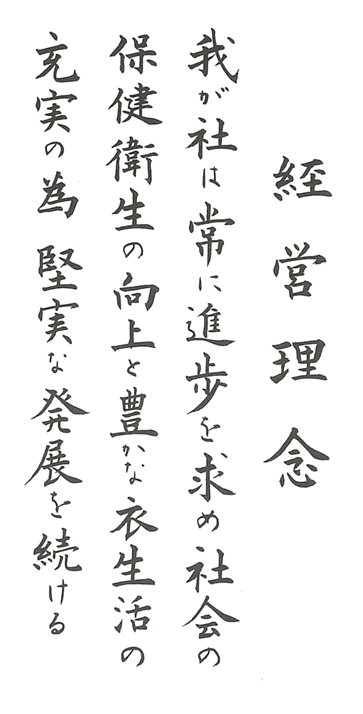 経営理念
我が社は常に進歩を求め社会の
保健衛生の向上と豊かな衣生活の
充実の為堅実な発展を続ける